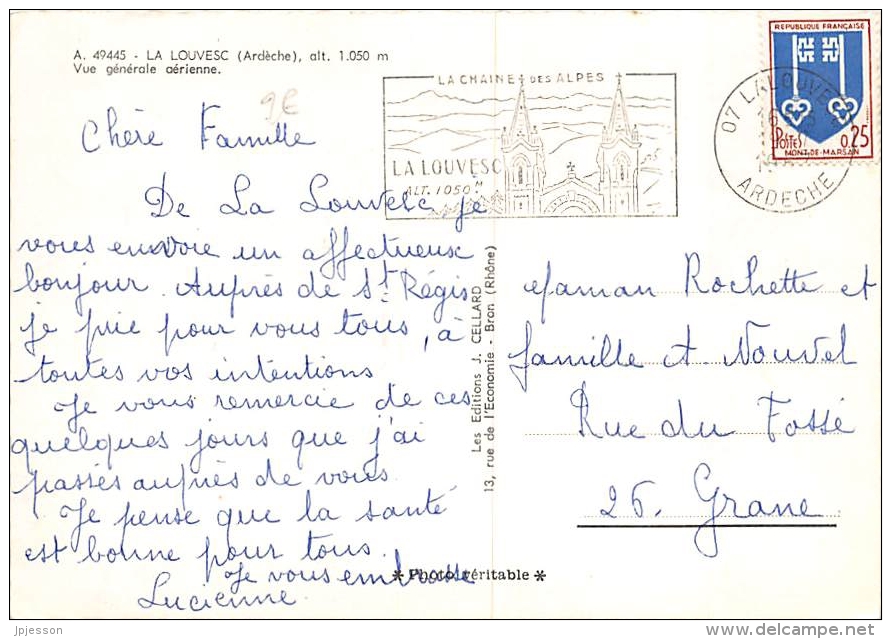 A. 49445 - LA LOUVESC (Ardèche), alt. 1.050 m
Vue générale aérienne.
9€
Chère Famille
De La Louvesc je
vous envoie un affectueux
bonjour. Auprès de St Régis
je prie pour vous tous, à
toutes vos intentions
Je vous remercie de ces
quelques jours que j'ai
passés auprès de vous.
Je pense que la santé
est bonne pour tous.
Je vous embrasse
Lucienne
LA CHAINE DES ALPES
LA LOUVESC
ALT. 1050 M
07 LALOUVESC
ARDECHE
REPUBLIQUE FRANÇAISE
POSTES
0,25
MONT-DE-MARSAN
Les Editions J. CELLARD
13, rue de l'Economie - Bron (Rhône)
Maman Rochette et
famille A. Nouvel
Rue du Fossé
26. Grane
* Photo véritable *
jpjesson
www.delcampe.net